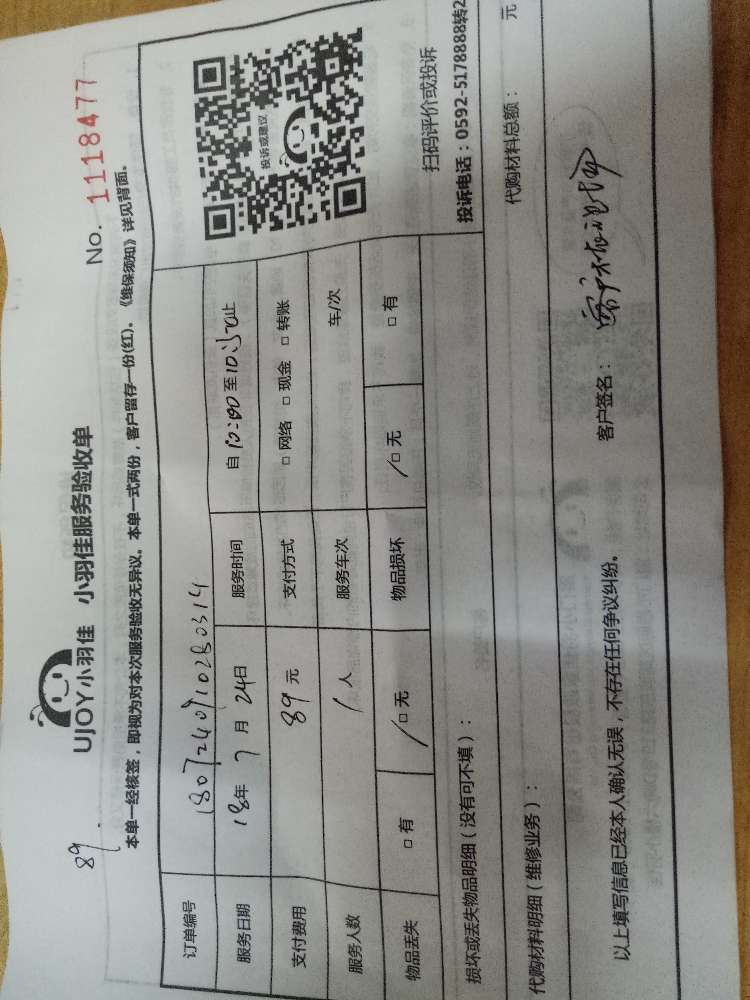 89
UJOY小羽佳 小羽佳服务验收单
No. 1118477
本单一经核签，即视为对本次服务验收无异议。本单一式两份，客户留存一份(红)。《维保须知》详见背面。
订单编号 180724091028 0314
服务日期 18年 7 月 24日 服务时间 自 10:00 至 10:50止
支付费用 89 元 支付方式 □ 网络 □ 现金 □ 转账
服务人数 1 人 服务车次 车/次
物品丢失 □ 有 □ 无 物品损坏 □ 无 □ 有
投诉或建议
扫码评价或投诉
投诉电话：0592-5178888转2
损坏或丢失物品明细（没有可不填）：
代购材料明细（维修业务）： 代购材料总额： 元
以上填写信息已经本人确认无误，不存在任何争议纠纷。 客户签名：